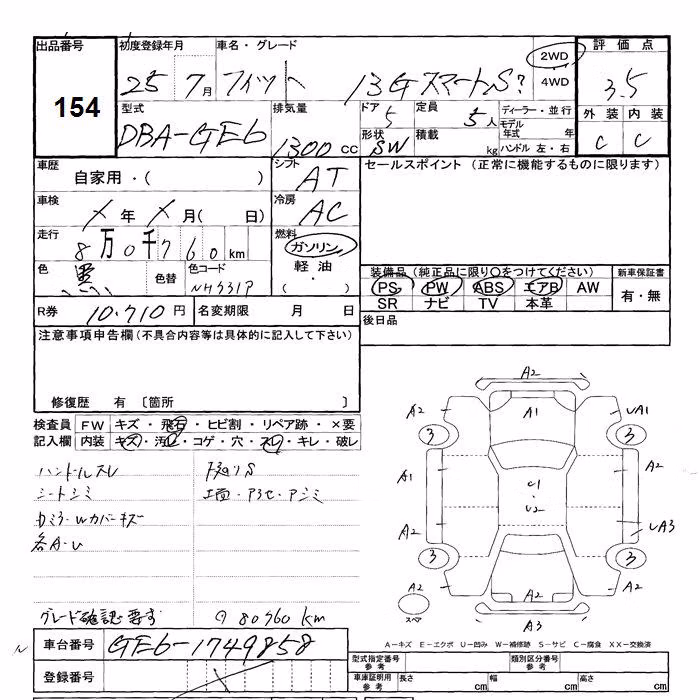 出品番号 初度登録年月 車名・グレード 2WD 評価点
154 25 7月 フィット 13GスマートS? 4WD 3.5
型式 排気量 ドア 5 定員 5人 ディーラー・並行 外装 内装
DBA-GE6 1300cc 形状 SW 積載 kg モデル年式 年 ハンドル 左・右 C C
車歴 シフト セールスポイント (正常に機能するものに限ります)
自家用・( ) AT
車検 冷房
×年×月( 日) AC
走行 燃料
8万0千760km ガソリン
色 黒 色替 色コード NH731P 軽油 装備品 (純正品に限り○をつけてください) 新車保証書
( ・ ) PS PW ABS エアB AW 有・無
SR ナビ TV 本革
R券 10.710円 名変期限 月 日 後日品
注意事項申告欄 (不具合内容等は具体的に記入して下さい)
修復歴 有 〔箇所 〕
検査員 FW キズ・飛石・ヒビ割・リペア跡・×要
記入欄 内装 キズ・汚レ・コゲ・穴・スレ・キレ・破レ
ハンドルスレ 下廻りS
シートシミ
カバーキズ
各A・U
グレード確認要す 80760km
車台番号 GE6-1749858
登録番号
A2
A2 A1 UA1
3 3
A1 C1 A2
・
U2
A2 UA3
3 3
A2 A2 A2
スペア A3
A-キズ E-エクボ U-凹み W-補修跡 S-サビ C-腐食 XX-交換済
型式指定番号 参考 類別区分番号 参考
車庫証明用 参考 長さ cm 幅 cm 高さ cm